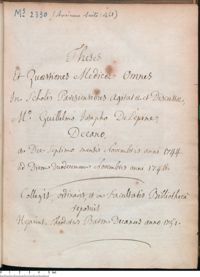 Ms 2330 (
Theses
Et Quæstiones Medicæ Omnes
In Scholis Parisiensibus Agitatæ et Discussæ,
Mo. Guillelmo Josepho De l'epine,
Decano,
a die septimo mensis Novembris anno 1744
ad Diem Novembris anno 1746.
Collegit, ordinavit, et in Facultatis Bibliotheca
reposuit
Hyacint. Theodorus Baron Decanus anno 1751.